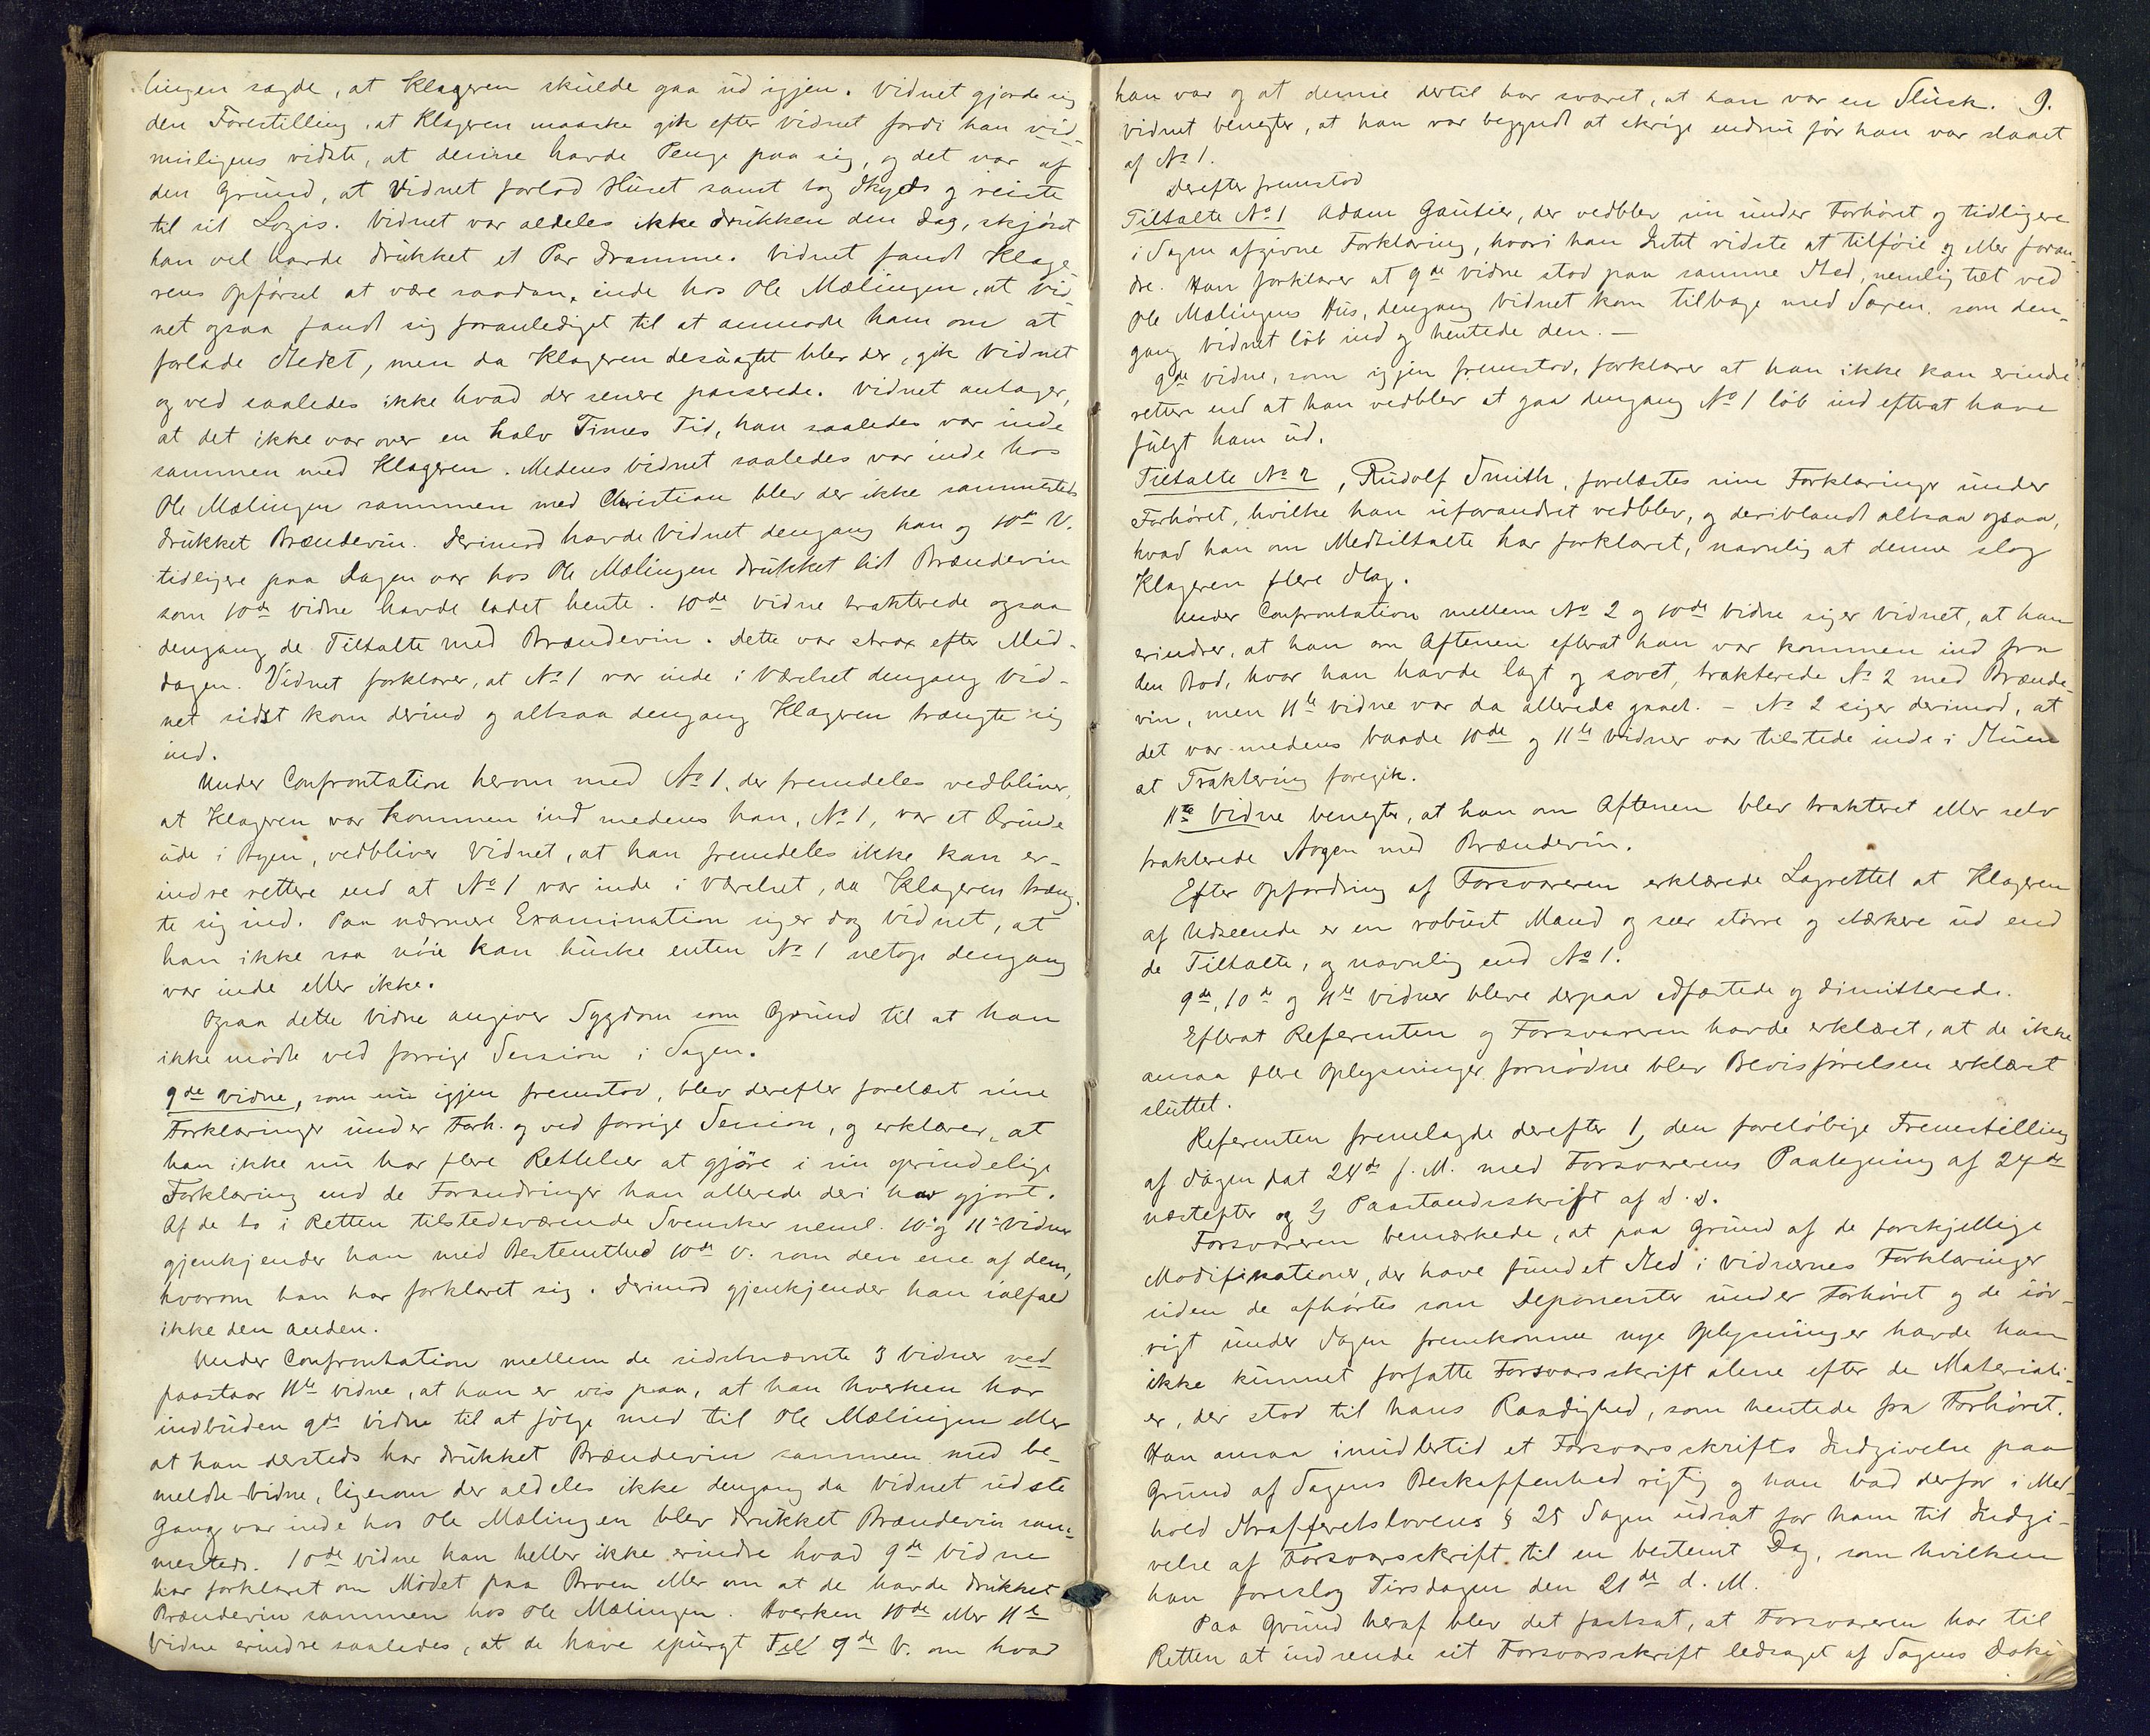 lingen sagde, at Klageren skulde gaa ud igjen. Vidnet gjorde sig
den Forestilling, at Klageren maaske gik efter Vidnet fordi han vid-
muligens vidste, at denne havde Penge paa sig, og det var af
den Grund, at Vidnet forlod Huset samt tog Skyds og reiste
til sit Logis. Vidnet var aldeles ikke drukken den Dag, skjønt
han vel havde drukket et Par Dramme. Vidnet fandt Klage-
rens Opførsel at være saadan, inde hos Ole Mælingen, at Vid-
net ogsaa fandt sig foranlediget til at anmode ham om at
forlade Stedet, men da Klageren desuagtet blev der, gik Vidnet
og ved saaledes ikke hvad der senere passerede. Vidnet antager,
at det ikke var over en halv Times Tid, han saaledes var inde
sammen med Klageren. Medens Vidnet saaledes var inde hos
Ole Mælingen sammen med Christian blev der ikke sammesteds
drukket Brændevin. Derimod havde Vidnet dengang han og 10de V.
tidligere paa Dagen var hos Ole Mælingen drukket lidt Brændevin
som 10de Vidne havde ladet hente. 10de Vidne trakterede ogsaa
dengang de Tiltalte med Brændevin. Dette var strax efter Mid-
dagen. Vidnet forklarer, at No 1 var inde i Værelset dengang Vid-
net sidst kom derind og altsaa dengang Klageren trængte sig
ind.
Under Confrontation herom med No 1, der fremdeles vedbliver,
at Klageren var kommen ind medens han, No 1, var et Ærinde
ude i Byen, vedbliver Vidnet, at han fremdeles ikke kan er-
indre rettere end at No 1 var inde i Værelset, da Klageren træng-
te sig ind. Paa nærmere Examination siger dog Vidnet, at
han ikke saa nøie kan huske enten No 1 netop dengang
var inde eller ikke.
Ogsaa dette Vidne angiver Sygdom som Grund til at han
ikke mødte ved forrige Session i Sagen.
9de Vidne, som nu igjen fremstod, blev derefter forelæst sine
Forklaringer under Forh. og ved forrige Session, og erklærer, at
han ikke nu har flere Rettelser at gjøre i sin oprindelige
Forklaring end de Forandringer han allerede deri har gjort.
Af de to i Retten tilstedeværende Svensker neml. 10. og 11. Vidner
gjenkjender han med Bestemthed 10de V. som den ene af dem,
hvorom han har forklaret sig. Derimod gjenkjender han ialfald
ikke den anden.
Under Confrontation mellem de sidstnævnte 3 Vidner ved
paastaar 11te Vidne, at han er vis paa, at han hverken har
indbuden 9de Vidne til at følge med til Ole Mælingen eller
at han dersteds har drukket Brændevin sammen med be-
meldte Vidne, ligesom der aldeles ikke dengang da Vidnet sidste
Gang var inde hos Ole Mælingen blev drukket Brændevin sam-
mesteds. 10de Vidne kan heller ikke erindre hvad 9de Vidne
har forklaret om Mødet paa Broen eller om at de havde drukket
Brændevin sammen hos Ole Mælingen. Hverken 10de eller 11te
Vidne erindre saaledes, at de have spurgt 9de V. om hvad
han var og at denne dertil har svaret, at han var en Slusk. 9.
Vidnet benegter, at han var begyndt at skrige endnu før han var slaaet
af No 1.
Derefter fremstod
Tiltalte No 1 Adam Gautier, der vedblev sin under Forhøret og tidligere
i Sagen afgivne Forklaring, hvori han Intet vidste at tilføie og eller foran-
dre. Han forklarer at 9de Vidne stod paa samme Sted, nemlig tæt ved
Ole Mælingens Hus, dengang Vidnet kom tilbage med Saxen, som den-
gang Vidnet løb ind og hentede den. —
9de Vidne, som igjen fremstod, forklarer at han ikke kan erindre
rettere end at han vedblev at gaa dengang No 1 løb ind efterat have
fulgt ham ud.
Tiltalte No 2, Rudolf Smith, forelæstes sine Forklaringer under
Forhøret, hvilke han uforandret vedblev, og deriblandt altsaa ogsaa,
hvad han om Medtiltalte har forklaret, navnlig at denne slog
Klageren flere Slag.
Under Confrontation mellem No 2 og 10de Vidne siger Vidnet, at han
erindrer, at han om Aftenen efterat han var kommen ind fra
den Bod, hvor han havde lagt og sovet, trakterede No 2 med Brænde-
vin, men 11te Vidne var da allerede gaaet. – No 2 siger derimod, at
det var medens baade 10de og 11te Vidner var tilstede inde i Stuen
at Traktering foregik.
11te Vidne benegter, at han om Aftenen blev trakteret eller selv
trakterede Nogen med Brændevin.
Efter Opfordring af Forsvareren erklærede Lagrettet at Klageren
af Udseende er en robust Mand og seer større og stærkere ud end
de Tiltalte, og navnlig end No 1.
9de, 10de og 11te Vidner bleve derpaa edfæstede og dimitterede.
Efterat Referenten og Forsvareren havde erklæret, at de ikke
ansaa flere Oplysninger fornødne blev Bevisførelsen erklæret
sluttet.
Referenten fremlagde derefter 1, den foreløbige Fremstilling
af Sagen dat 24de f. M. med Forsvarerens Paategning af 27de
næstefter og 2, Paastandsskrift af d. D.
Forsvareren bemærkede, at paa Grund af de forskjellige
Modifikationer, der have fundet Sted i Vidnernes Forklaringer
siden de afhørtes som Deponenter under Forhøret og de iøv-
rigt under Sagen fremkomne nye Oplysninger havde han
ikke kunnet forfatte Forsvarsskrift alene efter de Materiali-
er, der stod til hans Raadighed, som hentede fra Forhøret.
Han ansaa imidlertid et Forsvarsskrifts Indgivelse paa
Grund af Sagens Beskaffenhed rigtig og han bad derfor i Med-
hold Strafferetslovens § 25 Sagen udsat for ham til Indgi-
velse af Forsvarsskrift til en bestemt Dag, som hvilken
han foreslog Tirsdagen den 21de d. M.
Paa Grund heraf blev det fastsat, at Forsvareren har til
Retten at indsende sit Forsvarsskrift ledsaget af Sagens Doku-